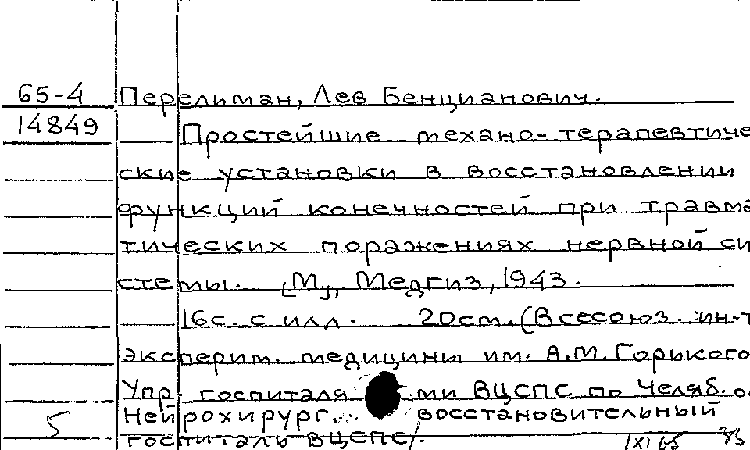 65-4 Перельман, Лев Бенцианович.
14849 Простейшие механо-терапевтиче
ские установки в восстановлении
функций конечностей при травма
тических поражениях нервной си
стемы. [М], Медгиз, 1943.
16с. с илл. 20см. (Всесоюз. ин-т
эксперим. медицины им. А.М. Горького
Упр госпиталя ми ВЦСПС по Челяб. о
5 Нейрохирург... восстановительный
госпиталь ВЦСПС).